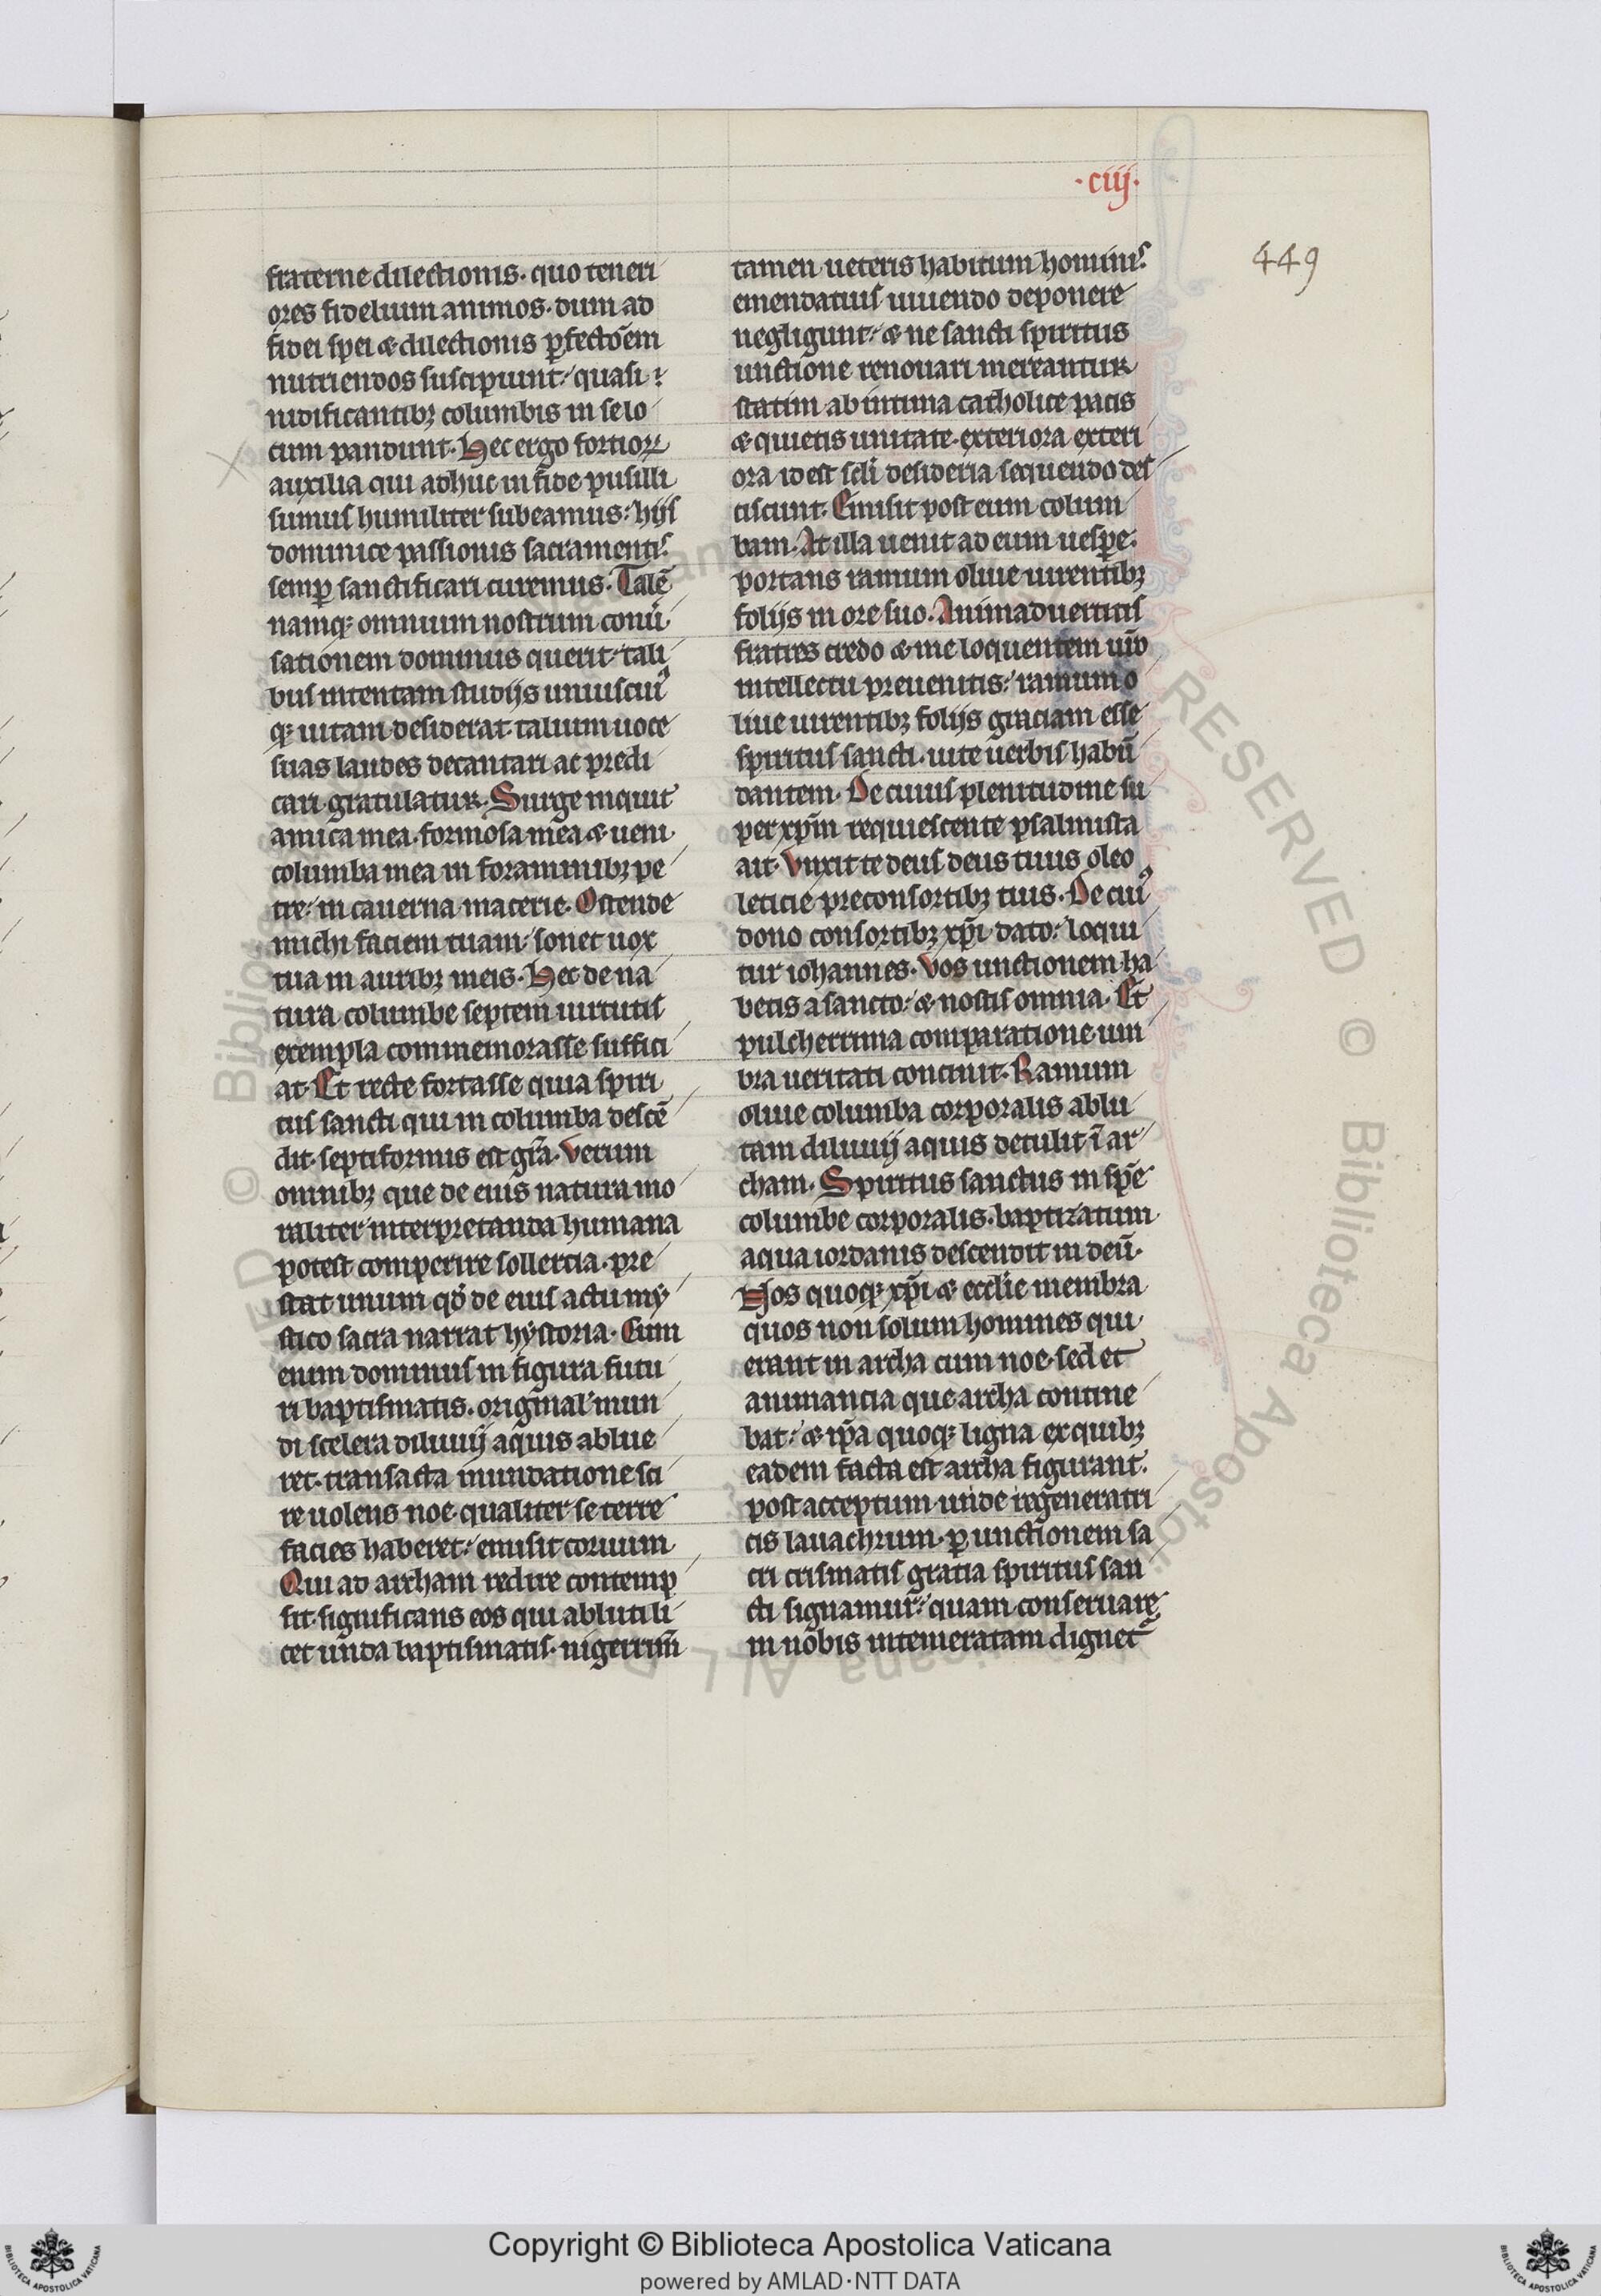 ·ciij·
449
fraterne dilectionis. quo teneri
ores fidelium animos. dum ad
fidei spei & dilectionis ꝑfectōem
nutriendos suscipiunt: quasi
nidificantibꝫ columbis in se lo
cum pandunt. Hec ergo fortioꝝ
auxilia qui adhuc in fide pusilli
sumus humiliter subeamus: hijs
dominice passionis sacramentis
semꝑ sanctificari curemus. Talē
namqꝫ omnium nostrum conũ
sationem dominus querit: tali
bus intentam studijs uniuscuiꝰ
qꝫ uitam desiderat. talium uoce
suas laudes decantari ac predi
cari gratulatur. Surge inquit
amica mea. formosa mea & ueni
columba mea in foraminibꝫ pe
tre: in cauerna macerie. Ostende
michi faciem tuam: sonet uox
tua in auribꝫ meis. Hec de na
tura columbe septem uirtutis
exempla commemorasse suffici
at. Et recte fortasse quia spiri
tus sancti qui in columba descē
dit. septiformis est gr̃a. Verum
omnibꝫ que de eius natura mo
raliter interpretanda humana
potest comperire sollertia. pre
stat unum qď de eius actu my
stico sacra narrat hystoria. Cum
enim dominus in figura futu
ri baptismatis. original' mun
di scelera diluuij aquis ablue
ret. transacta inundatione sci
re uolens noe. qualiter se terre
facies haberet: emisit coruum
Qui ad archam redire contemp
sit. significans eos qui abluti li
cet unda baptismatis. nigerrim̄
tamen ueteris habitum hominis
emendatius uiuendo deponere
negligunt: & ne sancti spiritus
unctione renouari mereantur
statim ab intima catholice pacis
& quietis unitate. exteriora exteri
ora id est scli desideria sequendo des
ciscunt. Emisit post eum colum
bam. At illa uenit ad eum uesꝑe:
portans ramum oliue uirentibꝫ
folijs in ore suo. Animaduertitis
fratres credo & me loquentem uiuo
intellectu preuenitis: ramum o
liue uirentibꝫ folijs graciam esse
spiritus sancti. uite uerbis habũ
dantem. De cuius plenitudine su
per xp̄m requiescente psalmista
ait. Vnxit te deus deus tuus oleo
leticie preconsortibꝫ tuis. De cuiꝰ
dono consortibꝫ xp̄i dato: loqui
tur iohannes. Vos unctionem ha
betis a sancto: & nostis omnia. Et
pulcherrima comparatione um
bra ueritati concinit. Ramum
oliue columba corporalis ablu
tam diluuij aquis detulit ī ar
cham. Spiritus sanctus in spē
columbe corporalis. baptizatum
aqua iordanis descendit in deũ.
Nos quoqꝫ xp̄i & ecclie membra
quos non solum homines qui
erant in archa cum noe. sed et
animancia que archa contine
bat: & ip̄a quoqꝫ ligna ex quibꝫ
eadem facta est archa figurant.
post acceptum unde regeneratri
cis lauachrum. ꝑ unctionem sa
cri crismatis gratia spiritus san
cti signamur: quam conseruare
in nobis intemeratam dignetᷣ
Copyright © Biblioteca Apostolica Vaticana
powered by AMLAD·NTT DATA